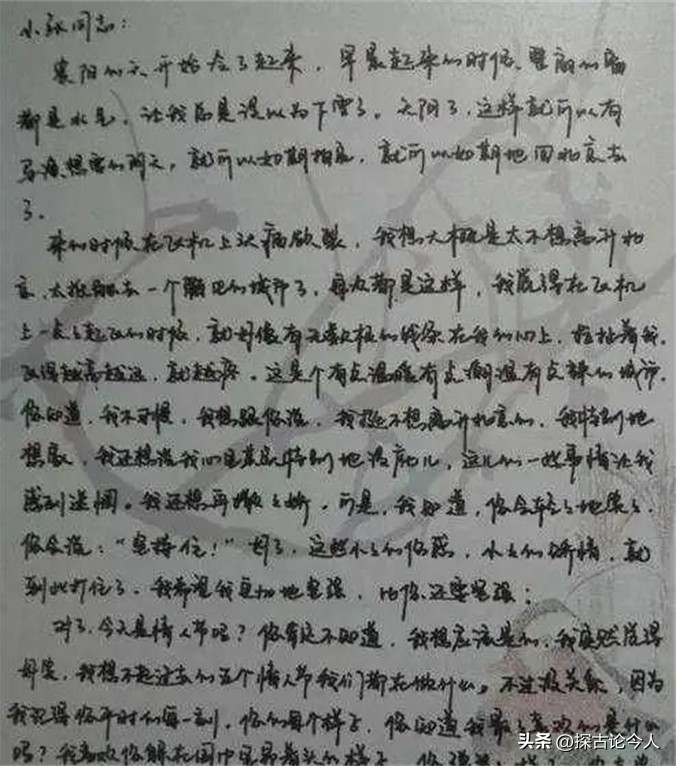 小张同志:
襄阳的天开始冷了起来,早晨起来的时候,整扇的窗
都是水气,让我总是误以为下雪了。天阴了,这样就可以有
想家的阴天,就可以如期相见,就可以如期地回北京去
了。
来的时候在飞机上头痛欲裂,我想大概是太不想离开北
京,太抗拒去一个陌生的城市了,每次都是这样,我觉得在飞机
上一点点起飞的时候,就好像有无数根的线系在我的心上,拉扯着我,
飞得越高越远,就越疼。这是个有点温暖有点潮湿有点辣的城市,
你知道,我不习惯,我想跟你说,我挺不想离开北京的,我特别地
想家,我还想说我心里其实特别地没底儿,这儿的一些事情让我
感到迷惘。我还想再撒撒娇。可是,我知道,你会轻轻地笑笑,
你会说:“坚持住!”好了,这些小小的伤感,小小的矫情,就
到此打住了。我希望我更加地坚强,比你还要坚强;
对了,今天是情人节吗?你肯定不知道,我想应该是的,我突然觉得
好笑,我想不起过去的五个情人节我们都在做什么。不过没关系,因为
我记得你平时的每一刻,你的每个样子,你知道我最喜欢的是什么
吗?我喜欢你躲在围巾里
头条 @探古论今人